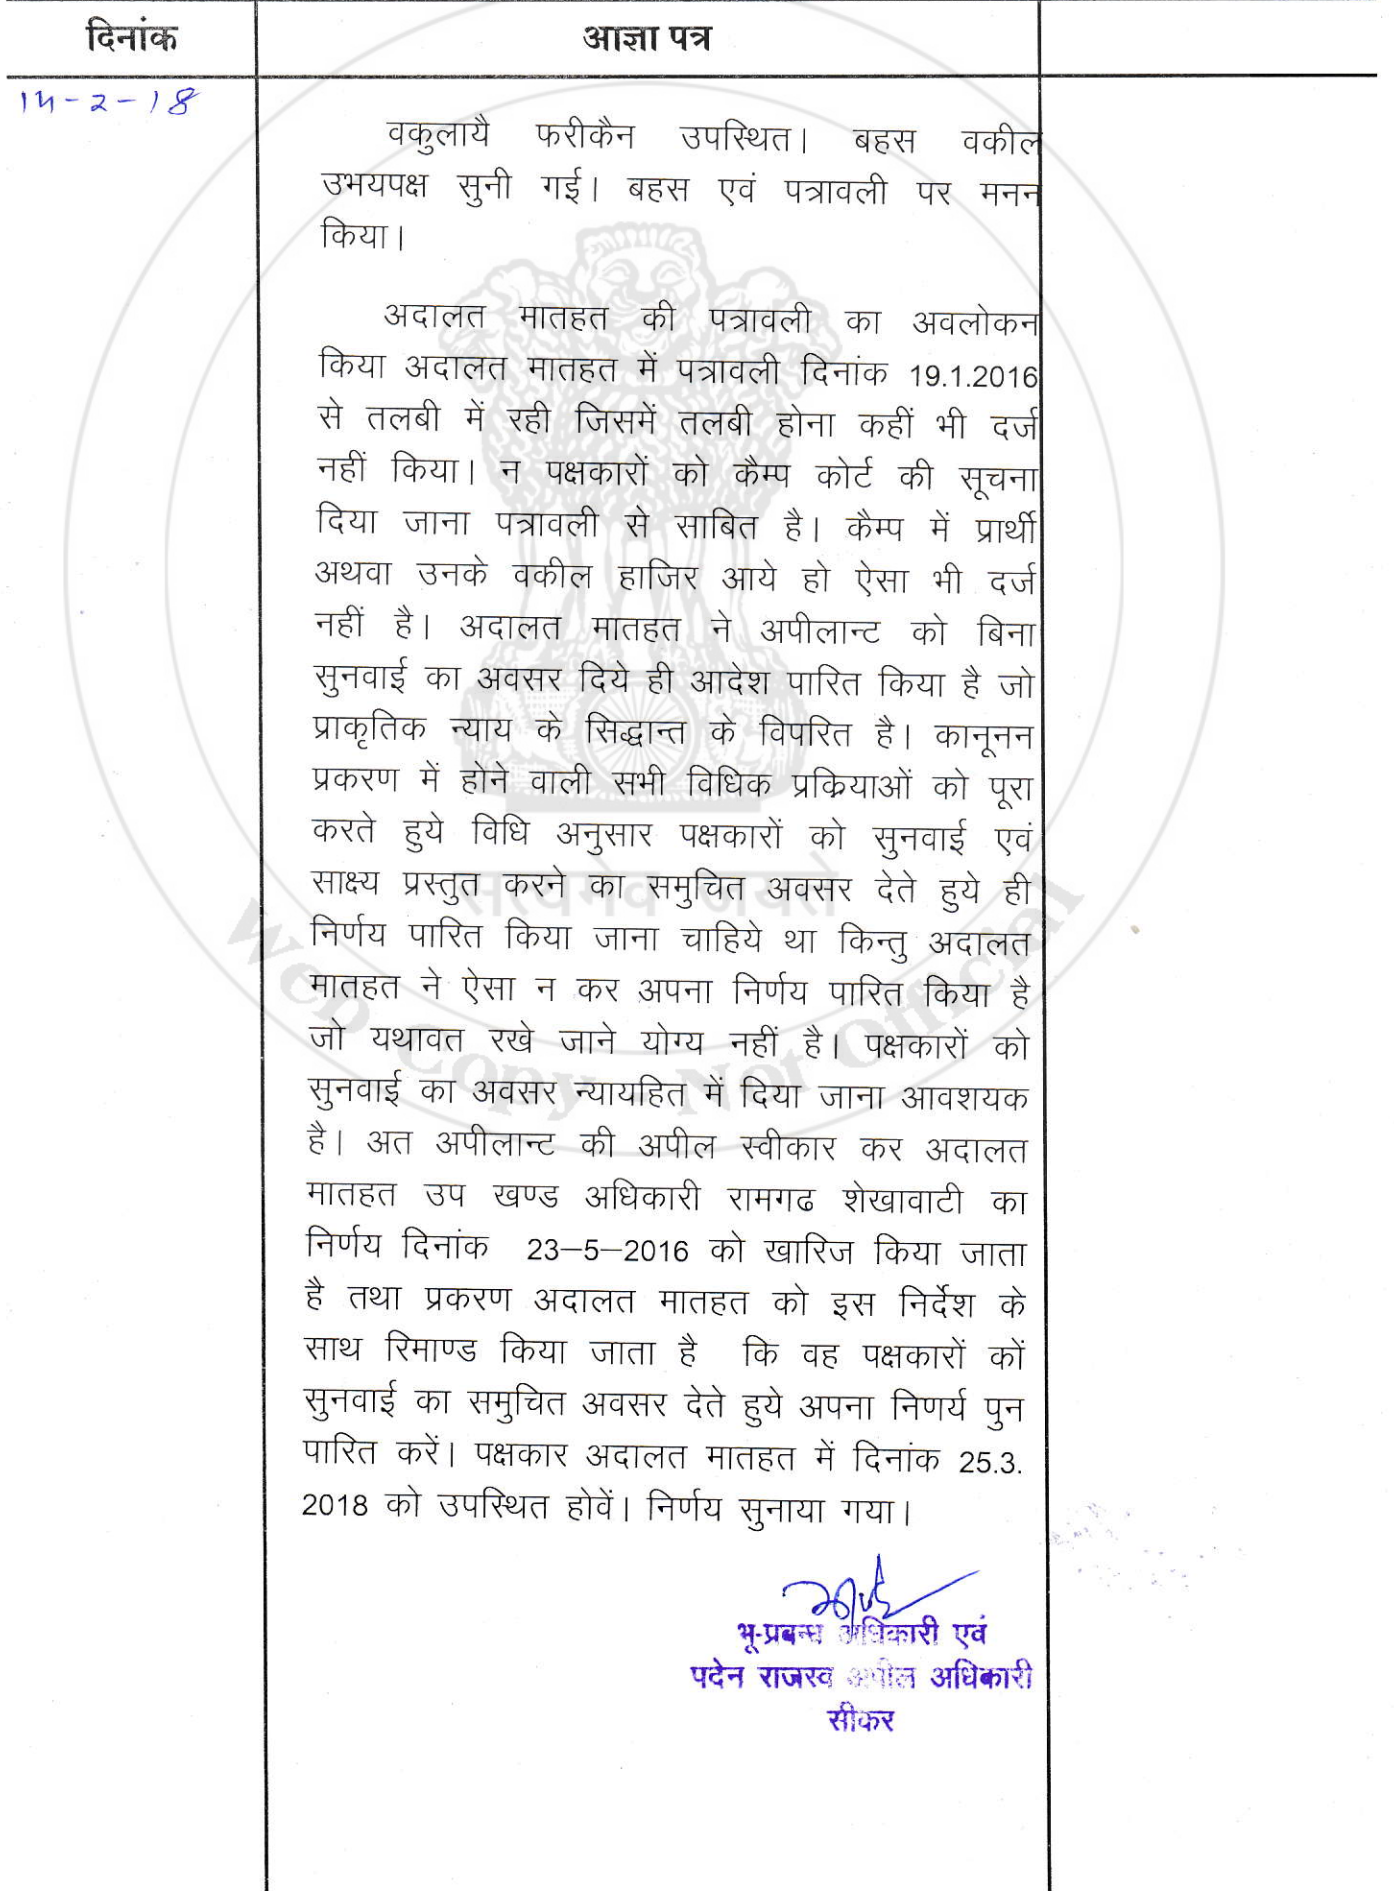 दिनांक
आज्ञा पत्र
14-2-18
वकुलायै फरीकैन उपस्थित। बहस वकील
उभयपक्ष सुनी गई। बहस एवं पत्रावली पर मनन
किया।
अदालत मातहत की पत्रावली का अवलोकन
किया अदालत मातहत में पत्रावली दिनांक 19.1.2016
से तलबी में रही जिसमें तलबी होना कहीं भी दर्ज
नहीं किया। न पक्षकारों को कैम्प कोर्ट की सूचना
दिया जाना पत्रावली से साबित है। कैम्प में प्रार्थी
अथवा उनके वकील हाजिर आये हो ऐसा भी दर्ज
नहीं है। अदालत मातहत ने अपीलान्ट को बिना
सुनवाई का अवसर दिये ही आदेश पारित किया है जो
प्राकृतिक न्याय के सिद्धान्त के विपरित है। कानूनन
प्रकरण में होने वाली सभी विधिक प्रकियाओं को पूरा
करते हुये विधि अनुसार पक्षकारों को सुनवाई एवं
साक्ष्य प्रस्तुत करने का समुचित अवसर देते हुये ही
निर्णय पारित किया जाना चाहिये था किन्तु अदालत
मातहत ने ऐसा न कर अपना निर्णय पारित किया है
जो यथावत रखे जाने योग्य नहीं है। पक्षकारों को
सुनवाई का अवसर न्यायहित में दिया जाना आवशयक
है। अत अपीलान्ट की अपील स्वीकार कर अदालत
मातहत उप खण्ड अधिकारी रामगढ शेखावाटी का
निर्णय दिनांक 23–5–2016 को खारिज किया जाता
है तथा प्रकरण अदालत मातहत को इस निर्देश के
साथ रिमाण्ड किया जाता है कि वह पक्षकारों कों
सुनवाई का समुचित अवसर देते हुये अपना निणर्य पुन
पारित करें। पक्षकार अदालत मातहत में दिनांक 25.3.
2018 को उपस्थित होवें। निर्णय सुनाया गया।
भू-प्रबन्ध अधिकारी एवं
पदेन राजस्व अपील अधिकारी
सीकर
सत्यमेव जयते
Web Copy - Not Official